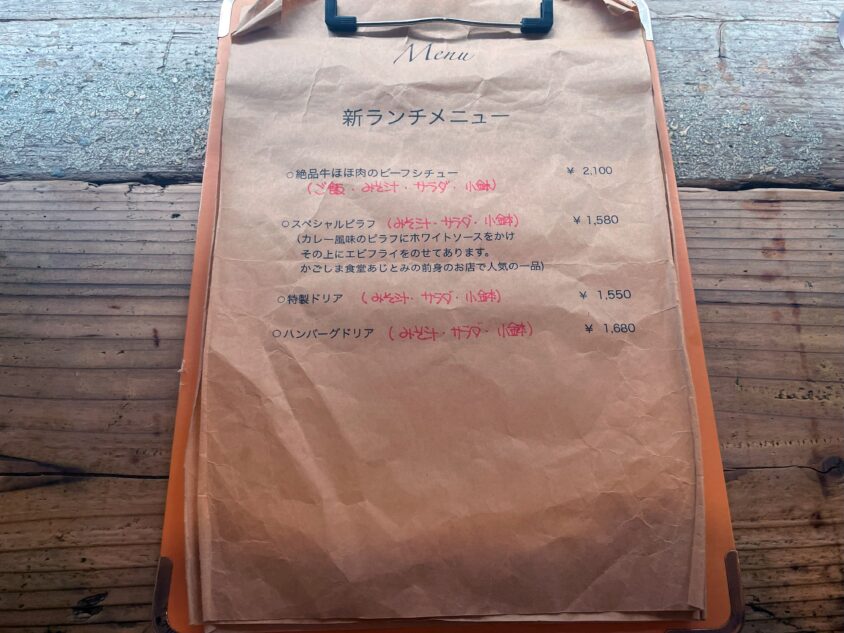 Menu
新ランチメニュー
○絶品牛ほほ肉のビーフシチュー ¥ 2,100
(ご飯・みそ汁・サラダ・小鉢)
○スペシャルピラフ (みそ汁・サラダ・小鉢) ¥ 1,580
(カレー風味のピラフにホワイトソースをかけ
その上にエビフライをのせてあります。
かごしま食堂あじとみの前身のお店で人気の一品)
○特製ドリア (みそ汁・サラダ・小鉢) ¥ 1,550
○ハンバーグドリア (みそ汁・サラダ・小鉢) ¥ 1,680